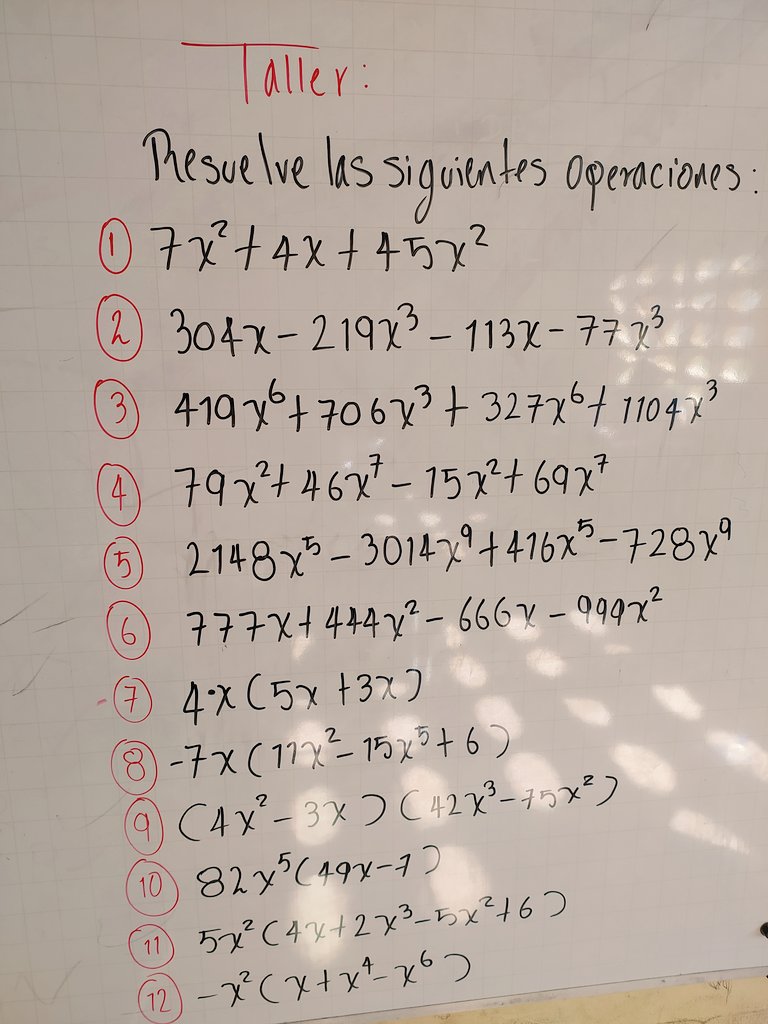 Taller:
Resuelve las siguientes operaciones:
1 7x² + 4x + 45x²
2 304x - 219x³ - 113x - 77x³
3 419x⁶ + 706x³ + 327x⁶ + 1104x³
4 79x² + 46x⁷ - 15x² + 69x⁷
5 2148x⁵ - 3014x⁹ + 416x⁵ - 728x⁹
6 777x + 444x² - 666x - 999x²
7 4·x (5x + 3x)
8 -7x (11x² - 15x⁵ + 6)
9 (4x² - 3x) (42x³ - 75x²)
10 82x⁵ (49x - 7)
11 5x² (4x + 2x³ - 5x² + 6)
12 -x² (x + x⁴ - x⁶)